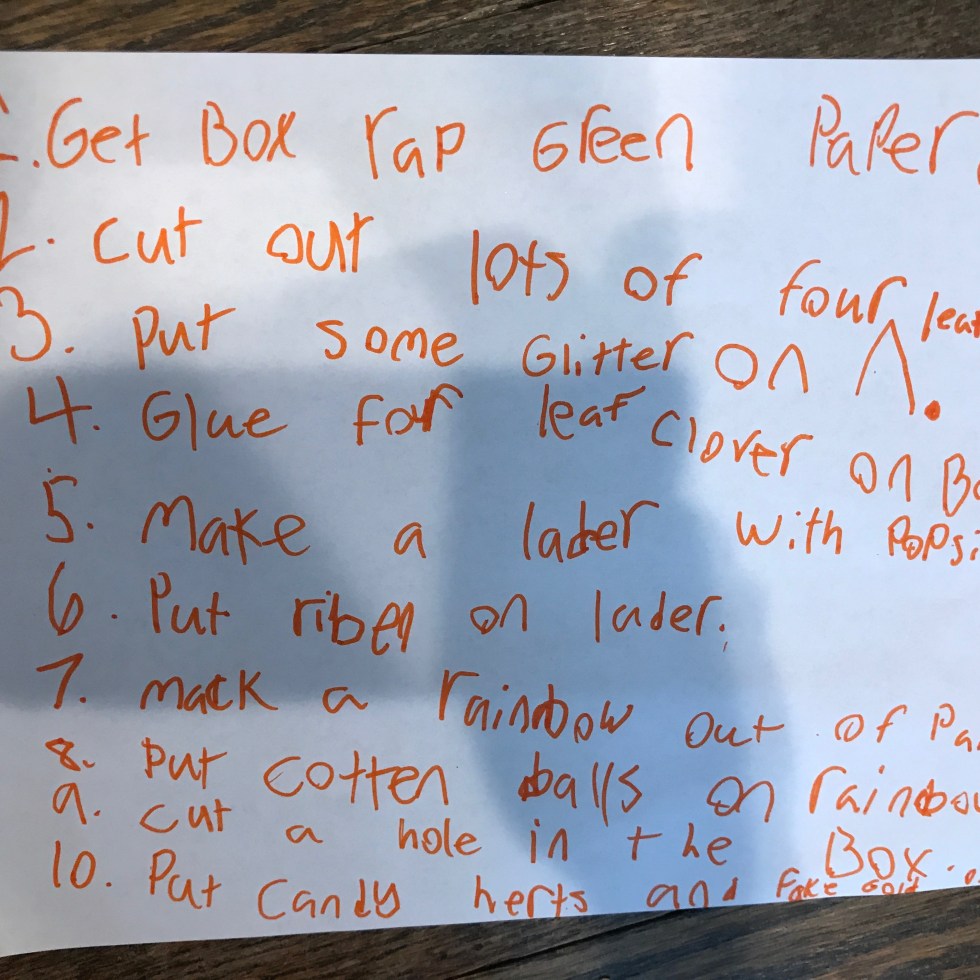 1. Get Box rap Green Paper
2. cut out lots of four leaf
3. Put some Glitter on ^.
4. Glue four leaf clover on Bo
5. Make a lader with Popsi
6. Put riben on lader.
7. mack a rainbow out of Pa
8. Put cotten balls on rainbow
9. cut a hole in the Box.
10. Put Candy herts and Fake Gold